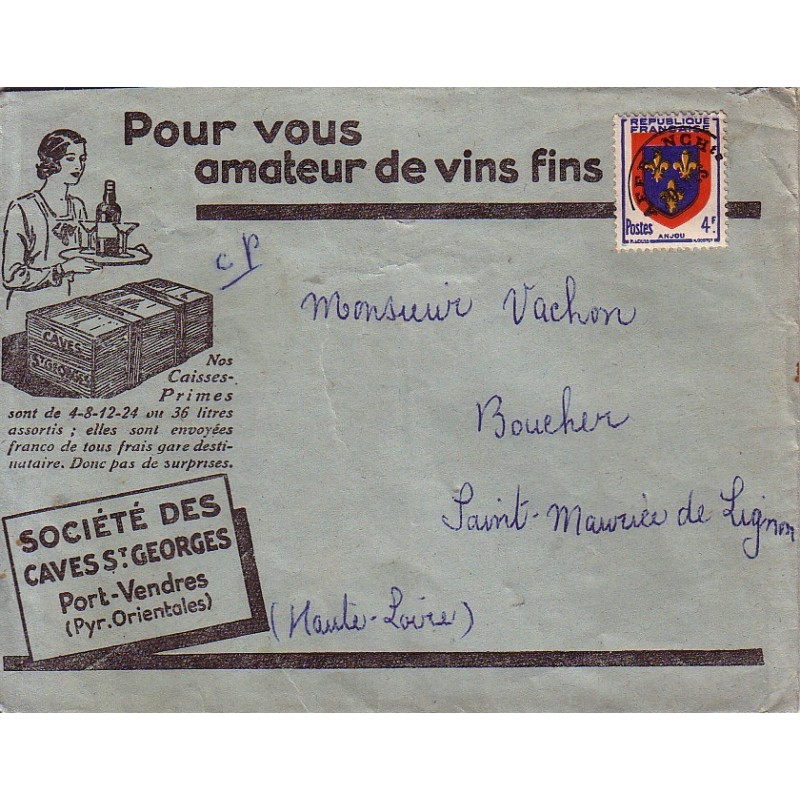 Pour vous
amateur de vins fins
RÉPUBLIQUE
FRANÇAISE
AFFRANCHts
Postes 4F
ANJOU
CP
Monsieur Vachon
Boucher
Saint-Maurice de Lignon
(Haute-Loire)
CAVES
ST GEORGES
Nos
Caisses-
Primes
sont de 4-8-12-24 ou 36 litres
assortis ; elles sont envoyées
franco de tous frais gare desti-
nataire. Donc pas de surprises.
SOCIÉTÉ DES
CAVES ST GEORGES
Port-Vendres
(Pyr. Orientales)